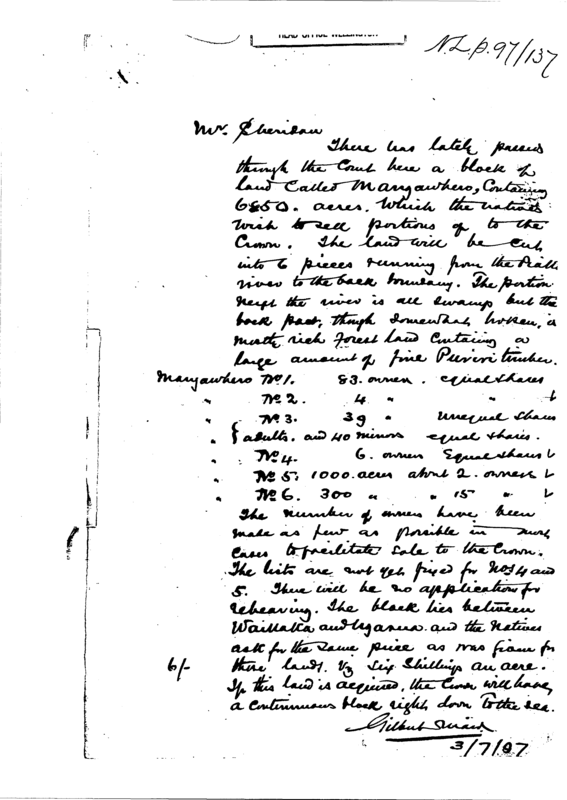 HEAD OFFICE WELLINGTON
N.L.P. 97/137
Mr. Sheridan
There has lately passed
through the Court here a block of
land called Mangawhero, Containing
6850. acres. Which the natives
wish to sell portions of to the
Crown. The land will be cut
into 6 pieces running from the
river to the back boundary. The portion
next the river is all swamp but the
back part, though somewhat broken, is
mostly rich forest land containing a
large amount of fine Puriri timber.
Mangawhero No 1. 83. owners. equal shares
" No 2. 4 " "
" No 3. 39 " Unequal shares
" adults. and 40 minors equal shares.
" No 4. 6. owners Equal shares
" No 5. 1000. acres about 2. owners
" No 6. 300 " " 15 "
The number of owners have been
made as few as possible in most
cases to facilitate sale to the Crown.
The lists are not yet fixed for Nos 4 and
5. There will be no application for
rehearing. The block lies between
and the Natives
ask for the same price as was given for
these lands. Viz Six Shillings an acre.
6/-
If this land is acquired, the Crown will have,
a continuous block right down to the sea.
Gilbert Mair
3/7/97